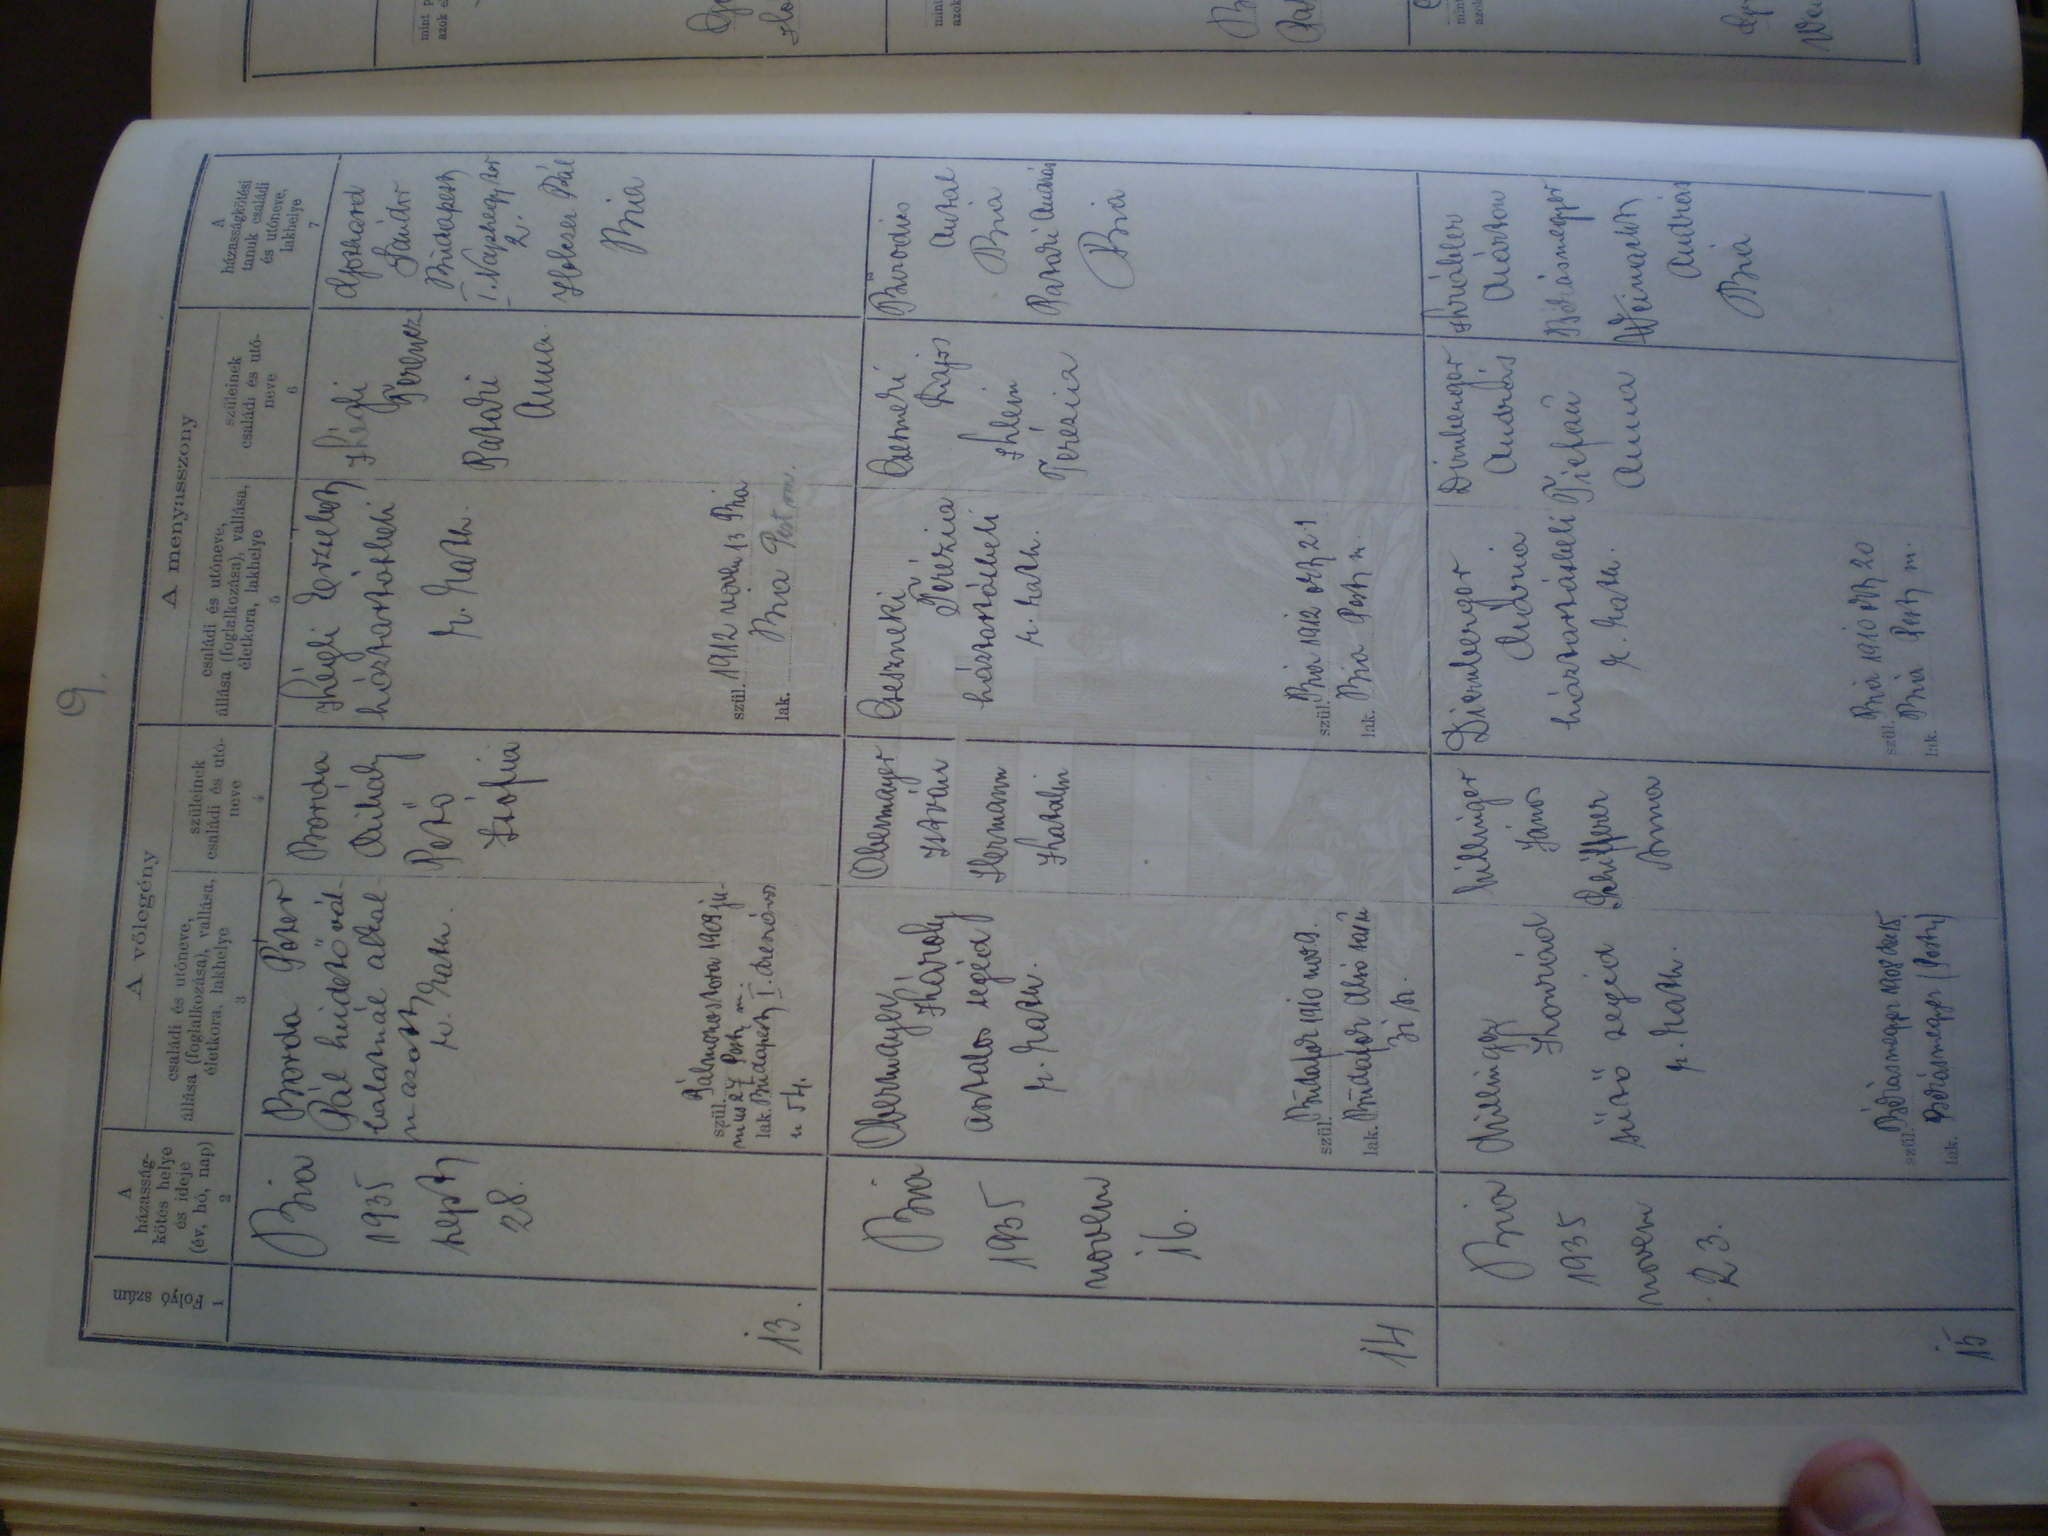 9.
1
Folyó
szám
A
házasság-
kötés helye
és ideje
(év, hó, nap)
2
A vőlegény
családi és utóneve,
állása (foglalkozása), vallása,
életkora, lakhelye
3
szüleinek
családi és utó-
neve
4
A menyasszony
családi és utóneve,
állása (foglalkozása), vallása,
életkora, lakhelye
5
szüleinek
családi és utó-
neve
6
A
házasságkötési
tanuk családi
és utóneve,
lakhelye
7
13.
Bia
1935
szept
28.
Borda Péter
Pál hirdető vál-
lalatnál alkal-
mazott
r. kath.
szül. Pálmonostora 1909 jú-
nius 27 Pest m.
lak. Budapest I.
u 54.
Borda
Mihály
Pető
Zsófia
Khégli Erzsébet
háztartásbeli
r. kath.
szül. 1912 novem 13 Bia
lak. Bia Pest m.
Khégli
Ferencz
Pataki
Anna.
Sándor
Budapest
I. Naphegy tér
2.
Pál
Bia
14
Bia
1935
novem
16.
Obermayer
Károly
asztalos segéd
r. kath.
szül. Budafok 1910 nov 9.
lak. Budafok Alsó
Obermayer
István
Hermann
Katalin
Cseszneki
Terézia
háztartásbeli
r. kath.
szül. Bia 1912 okt 21
lak. Bia Pest m.
Cseszneki
Lajos
Khlein
Terézia
Antal
Bia
Pataki András
Bia
15
Bia
1935
novem
23.
Millinger
Konrád
sütő segéd
r. kath.
szül. Békásmegyer 1908
lak. Békásmegyer (Pest)
Millinger
János
Anna
Dirnberger
Mária
háztartásbeli
r. kath.
szül. Bia 1910 okt 20
lak. Bia Pest m.
Dirnberger
András
Tiefán
Anna
Márton
Békásmegyer
Weinhardt
András
Bia
mint